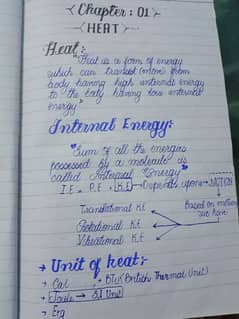 Chapter : 01
HEAT
Heat :
"Heat is a form of energy
which can transfer (move) from
body having high internal energy
to the body having low internal
energy"
Internal Energy :
"Sum of all the energies
possessed by a molecule is
called Internal Energy"
I.E = P.E + K.E → Depends upon → MOTION
Based on motion
we have
Translational K.E
Rotational K.E
Vibrational K.E
→ Unit of heat :
→ Cal → BTU (British Thermal Unit)
→ Joule → S.I Unit
→ Erg